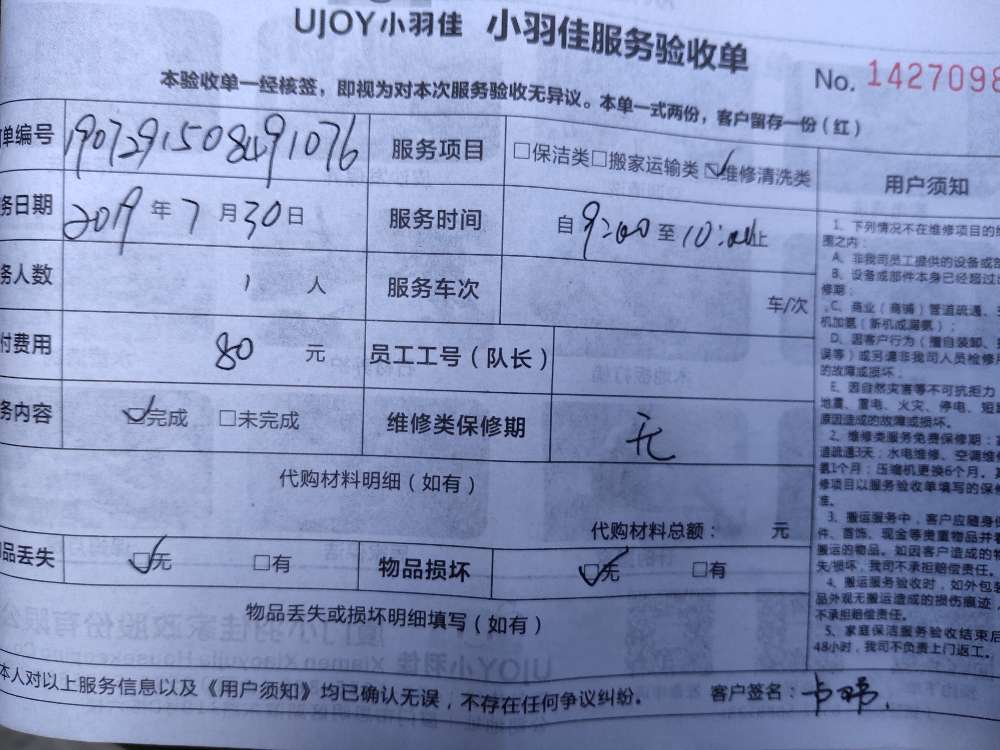 UJOY小羽佳 小羽佳服务验收单
No. 1427098
本验收单一经核签，即视为对本次服务验收无异议。本单一式两份，客户留存一份（红）
单编号 服务项目 □保洁类□搬家运输类☑维修清洗类
务日期 2019年7月30日 服务时间 自9:00至10:00止
务人数 1人 服务车次 车/次
付费用 80元 员工工号（队长）
务内容 ☑完成 □未完成 维修类保修期 无
代购材料明细（如有）
代购材料总额： 元
品丢失 ☑无 □有 物品损坏 ☑无 □有
物品丢失或损坏明细填写（如有）
本人对以上服务信息以及《用户须知》均已确认无误，不存在任何争议纠纷。 客户签名：
用户须知
1、下列情况不在维修项目的
围之内：
A、非我司员工提供的设备或
B、设备或部件本身已经超过
修期；
C、商业（商铺）管道疏通、
机加氨（新机或漏氨）；
D、因客户行为（擅自装卸、
误等）或另请非我司人员检修
的故障或损坏。
E、因自然灾害等不可抗拒力
地震、雷电、火灾、停电、短
原因造成的故障或损坏。
2、维修类服务免费保修期：
道疏通3天；水电维修、空调维
氨1个月；压缩机更换6个月。
修项目以服务验收单填写的保
准。
3、搬运服务中，客户应随身
件、首饰、现金等贵重物品并
搬运的物品。如因客户造成的
失/损坏，我司不承担赔偿责任。
4、搬运服务验收时，如外包装
品外观无搬运造成的损伤痕迹
不承担赔偿责任。
5、家庭保洁服务验收结束后
48小时，我司不负责上门返工。